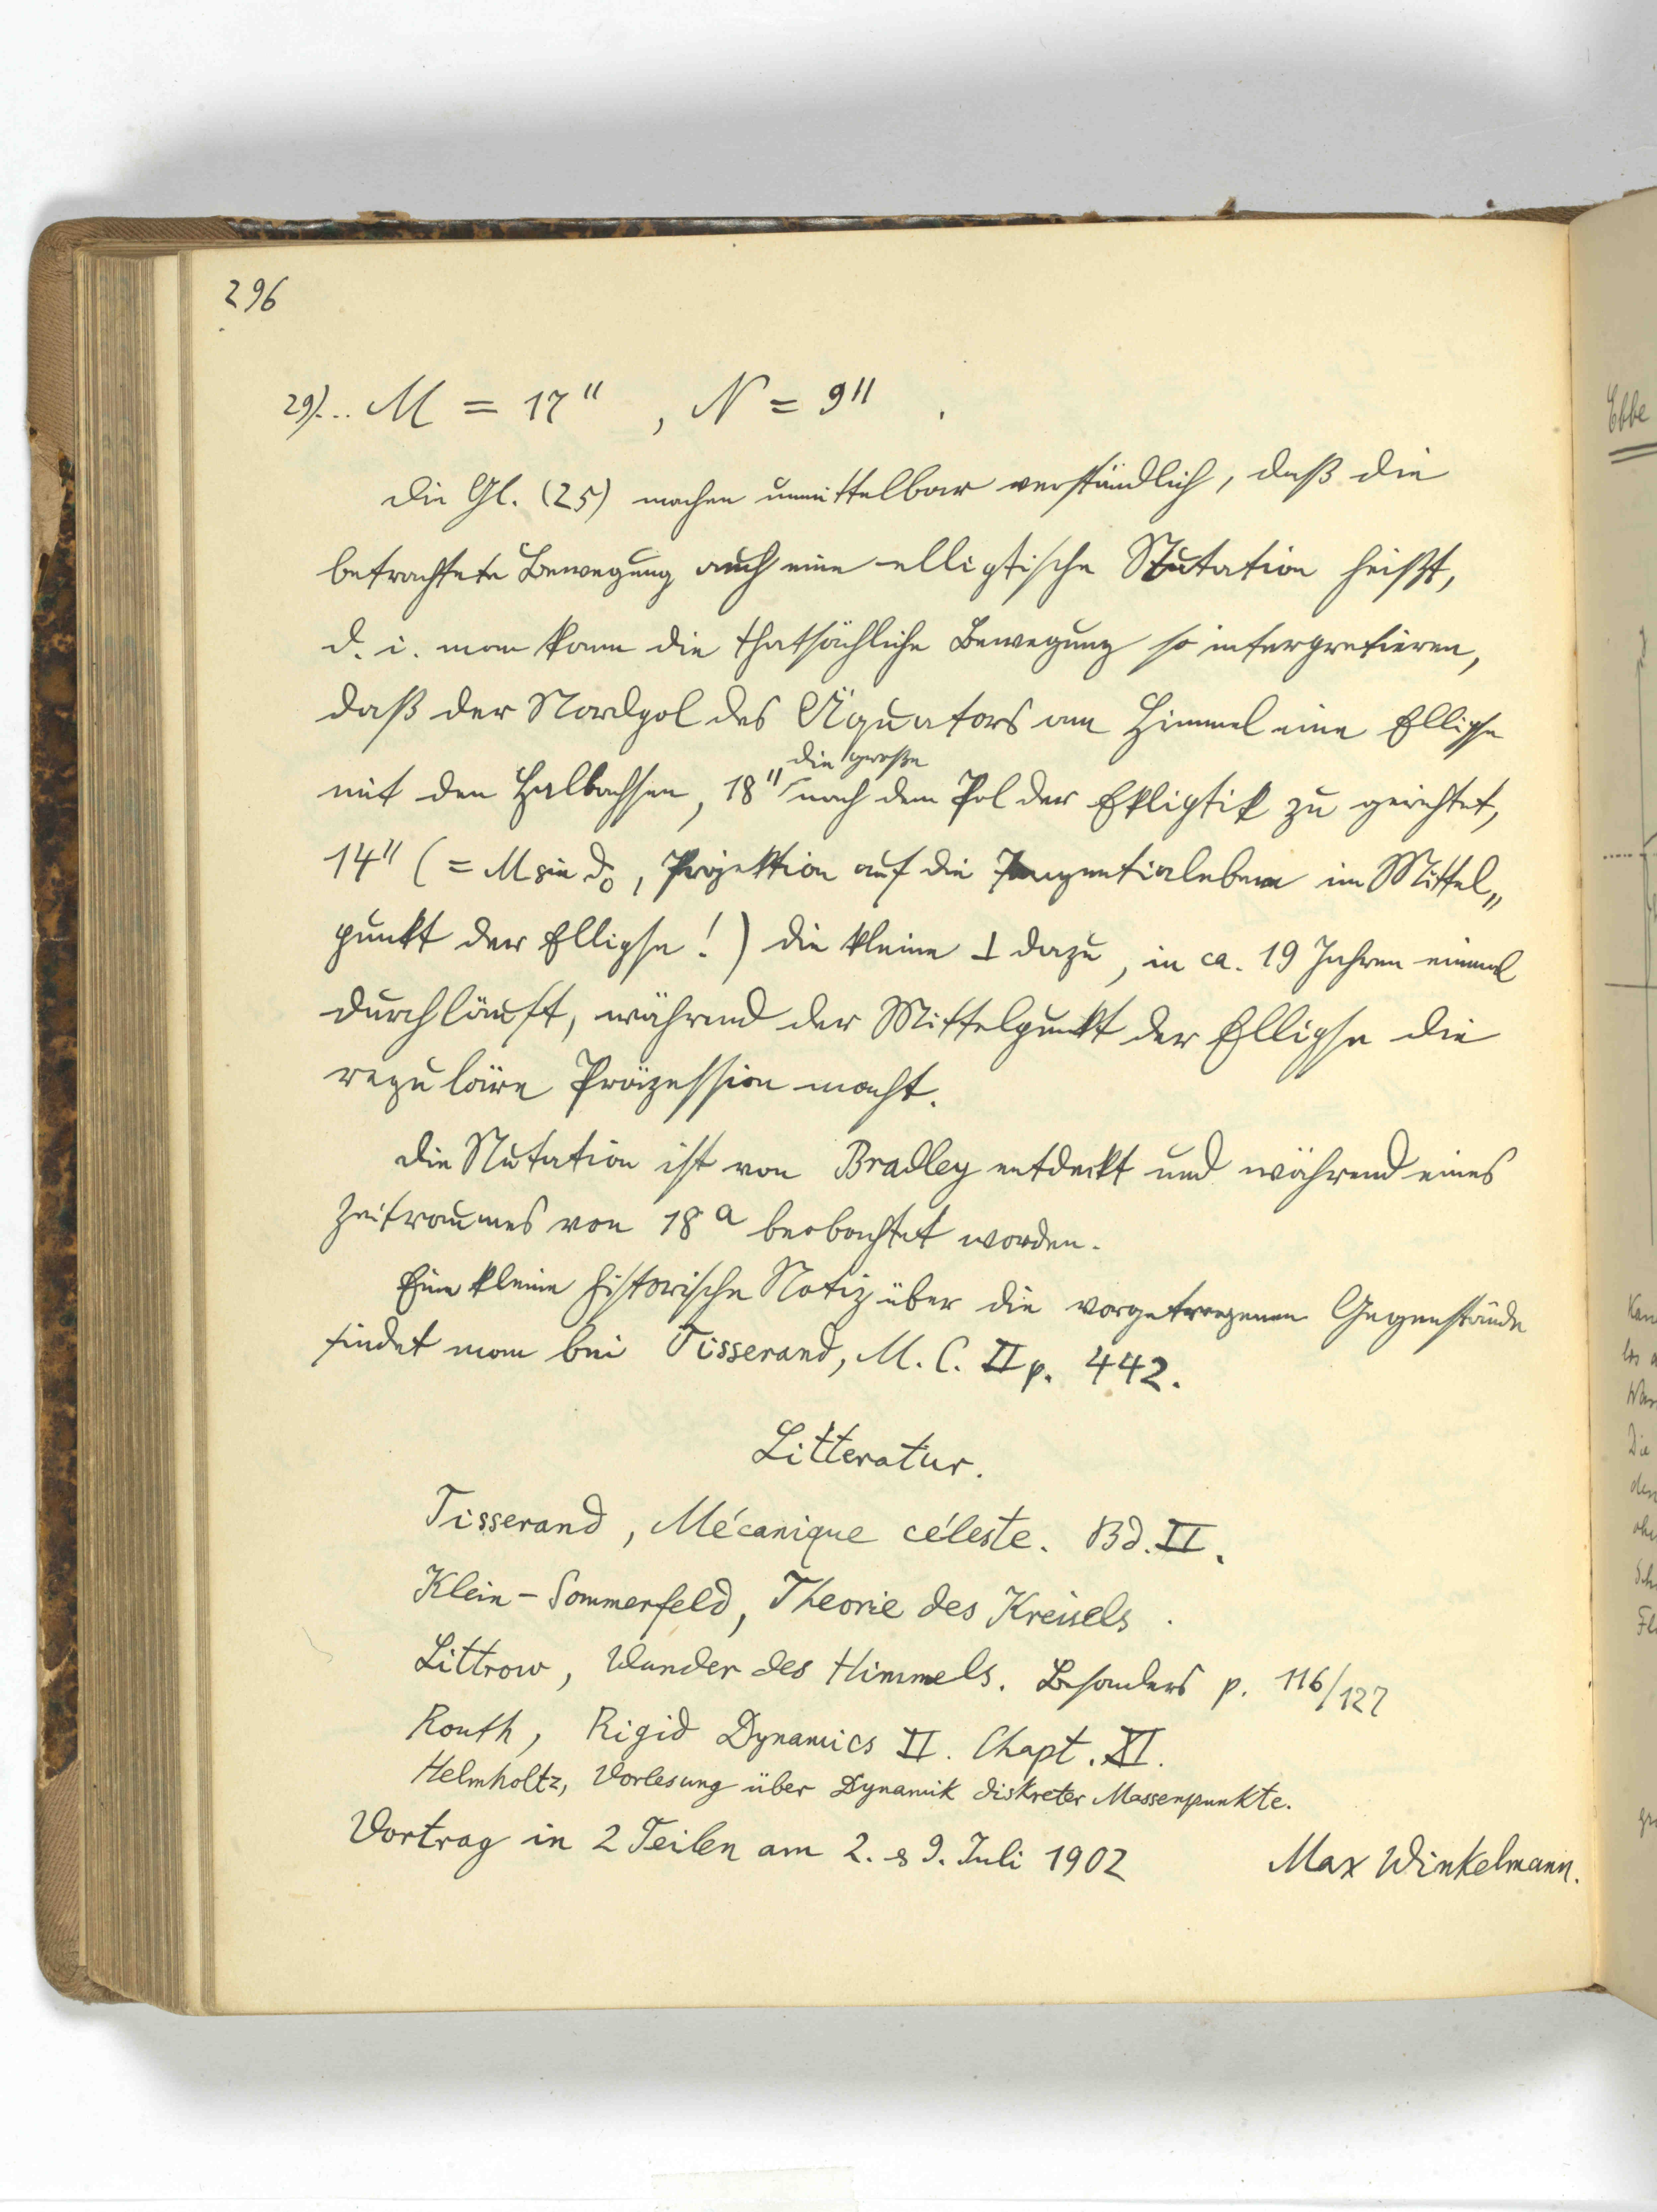 296
29)... M = 17" , N = 9" .
Die Gl. (25) machen unmittelbar verständlich, daß die
betrachtete Bewegung auch eine elliptische Nutation heißt,
d. i. man kann die thatsächliche Bewegung so interpretieren,
daß der Nordpol des Äquators am Himmel eine Ellipse
die große
mit den Halbachsen, 18" nach dem Pol der Ekliptik zu gerichtet,
14" (= M sin ϑ₀, Projektion auf die Tangentialebene im Mittel„
punkt der Ellipse!) die kleine ⊥ dazu, in ca. 19 Jahren einmal
durchläuft, während der Mittelpunkt der Ellipse die
reguläre Präzession macht.
Die Nutation ist von Bradley entdeckt und während eines
Zeitraumes von 18ᵃ beobachtet worden.
Eine kleine historische Notiz über die vorgetragenen Gegenstände
findet man bei Tisserand, M. C. II p. 442.
Litteratur.
Tisserand, Mécanique céleste. Bd. II.
Klein-Sommerfeld, Theorie des Kreisels.
Littrow, Wunder des Himmels. Besonders p. 116/127
Routh, Rigid Dynamics II. Chapt. XI.
Helmholtz, Vorlesung über Dynamik diskreter Massenpunkte.
Vortrag in 2 Teilen am 2. & 9. Juli 1902 Max Winkelmann.